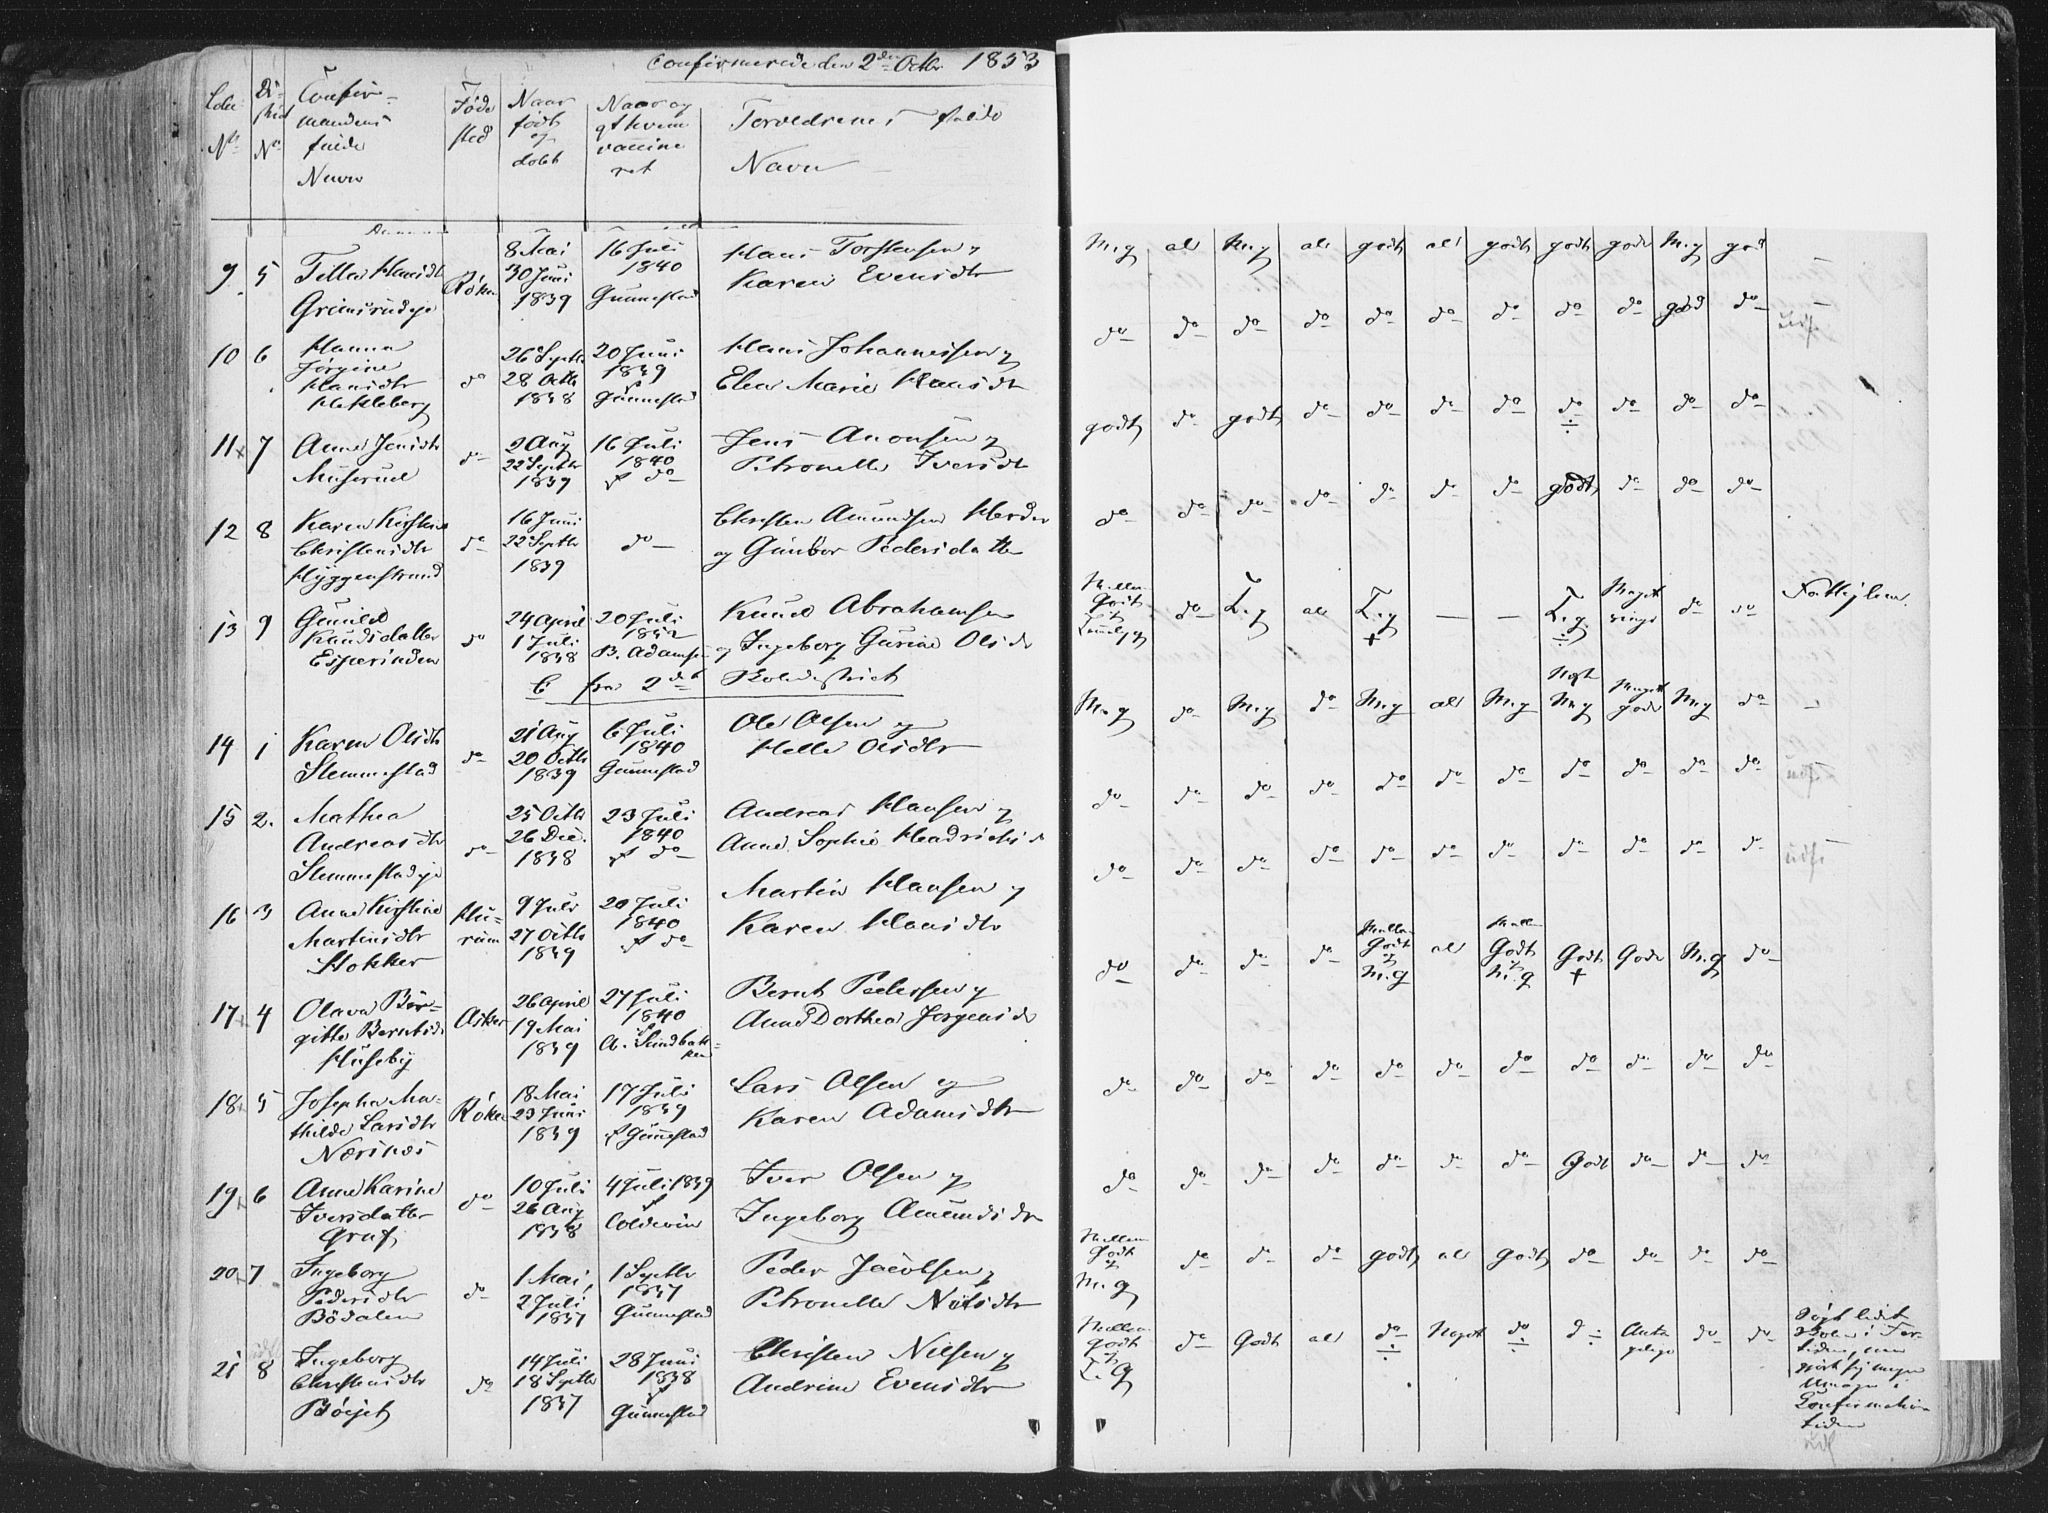 Confirmerede den 2den Octbr 1853
Løbe No
Di- strict No
Confir- mandens fulde Navn
Føde sted
Naar født og døbt
Naar og af hvem vaccine ret
Forældrenes fulde Navn
9 5 Hansdtr Grimsrudeje Røken 8 Mai 30 Juni 1839 16 Juli 1840 Gunnestad Hans Torstensen og Karen Evensdtr
10 6 Hanna Jørgine Hansdtr Hekleberg do 26 Septbr 28 Octbr 1838 20 Juni 1839 Gunnestad Hans Johannessen og Elen Marie Hansdtr
11 7 Anne Jensdtr Muserud do 2 Aug 22 Septbr 1839 16 Juli 1840 af do Jens Anonsen og Petronelle Iversdtr
12 8 Karen Kirstine Christensdtr Hyggenstrand do 16 Juni 22 Septbr 1839 do Christen Amundsen og Gunbor Pedersdatter
13 9 Gunild Knudsdatter do 24 April 1 Juli 1838 20 Juli 1852 B. Adamsen Knud Abrahamsen og Ingeborg Gurine Olsdr
C fra 2det Roledistrict
14 1 Karen Olsdtr Slemmestad do 21 Aug 20 Octbr 1839 6 Juli 1840 Gunnestad Ole Olsen og Helle Olsdtr
15 2. Mathea Andreasdtr Slemmestadeje do 25 Octbr 26 Dec. 1838 23 Juli 1840 af do Andreas Hansen og Anne Sophie
16 3 Anne Kirstine Martinsdtr Stokker Hu- rum 9 Juli 27 Octbr 1839 20 Juli 1840 af do Martin Hansen og Karen Hansdtr
17 4 Olava Bør- gitte Berntsdr Huseby Asker 26 April 19 Mai 1839 27 Juli 1840 Bernt Pedersen og Anne Dorthea Jørgensdr
18 5 Josepha Ma- thilde Larsdtr Nærsnes Røken 18 Mai 23 Juni 1839 17 Juli 1839 af Gunnestad Lars Olsen og Karen Adamsdtr
19 6 Anne Karine Iversdatter Graf do 10 Juli 26 Aug 1838 4 Juli 1839 af Coldevin Iver Olsen og Ingeborg Amundsdr
20 7 Ingeborg Pedersdtr Bødalen do 1 Mai 2 Juli 1837 1 Septbr 1837 Gunnestad Peder Jacobsen og Petronelle Nilsdtr
21 8 Ingeborg Christensdtr Bøejet do 14 Juli 18 Septbr 1837 28 Juni 1838 af Gunnestad Christen Nilsen og Andrine Evensdtr
M.g alt M.g alt godt alt godt godt god M.g god
do do do do do do do do do god do
godt do godt do do do do do ÷ do do do
do do do do do do do godt do do do
Mellem Godt og do T.g alt T.g + — — T.g. ÷ Meget do do
M.g do M.g do M.g alt M.g M.g Meget god M.g do
do do do do do do do do do do do
do do do do do do do do do do do
do do do do Mellem Godt og M.g alt Mellem Godt og M.g Godt + God M.g do
do do do do do do do do do do do
do do do do do do do Godt do do do
Mellem Godt og M.g do do do godt alt godt do do do do
Mellem Godt og T.g do Godt alt do ÷ Noget do ÷ d ÷ Anta gelige do do
Confirmations tiden